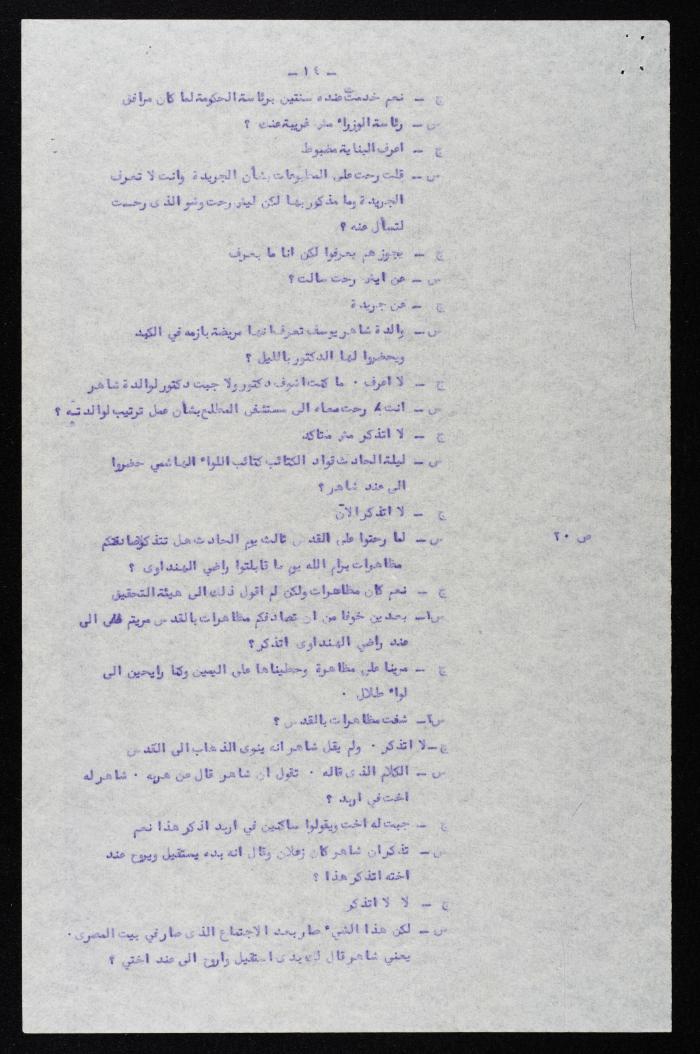 - ١٤ -
ج - نعم خدمت عنده سنتين برئاسة الحكومة لما كان مرافق
س - رئاسة الوزراء مش غريبة عنك ؟
ج - اعرف البناية مضبوط
س - قلت رحت على المطبوعات بشأن الجريدة وانت لا تعرف
الجريدة وما مذكور بها لكن ليش رحت وشو الذى رحت
لتسأل عنه ؟
ج - يجوز هم يعرفوا لكن انا ما بعرف
س - عن ايش رحت سالت ؟
ج - عن جريدة
س - والدة شاهر يوسف تعرف انها مريضة بازمه في الكبد
ويحضروا لها الدكتور بالليل ؟
ج - لا اعرف . ما كنت اشوف دكتور ولا جبت دكتور لوالدة شاهر
س - انت رحت معاه الى مستشفى المطلع بشأن عمل ترتيب لوالدته ؟
ج - لا اتذكر مش متاكد
س - ليلة الحادث قواد الكتائب كتائب اللواء الهاشمي حضروا
الى عند شاهر ؟
ج - لا اتذكر الآن
ص ٢٠ س - لما رحتوا على القدس ثالث يوم الحادث هل تتذكر صادفتكم
مظاهرات برام الله يوم ما قابلتوا راضي الهنداوى ؟
ج - نعم كان مظاهرات ولكن لم اقول ذلك الى هيئة التحقيق
س - بعدين خوفا من ان تصادفكم مظاهرات بالقدس مريتم الى
عند راضي الهنداوى اتذكر ؟
ج - مرينا على مظاهرة وحطيناها على اليمين وكنا رايحين الى
لواء طلال .
س - شفت مظاهرات بالقدس ؟
ج - لا اتذكر . ولم يقل شاهر انه ينوى الذهاب الى القدس
س - الكلام الذى قاله . تقول ان شاهر قال عن هربه . شاهر له
اخت في اربد ؟
ج - جبت له اخت ويقولوا ساكنين في اربد اذكر هذا نعم
س - تذكر ان شاهر كان زعلان وقال انه بده يستقيل ويروح عند
اخته اتذكر هذا ؟
ج - لا لا اتذكر
س - لكن هذا الشيء صار بعد الاجتماع الذى صار في بيت المصرى .
يعني شاهر قال بدى استقيل واروح الى عند اختي ؟